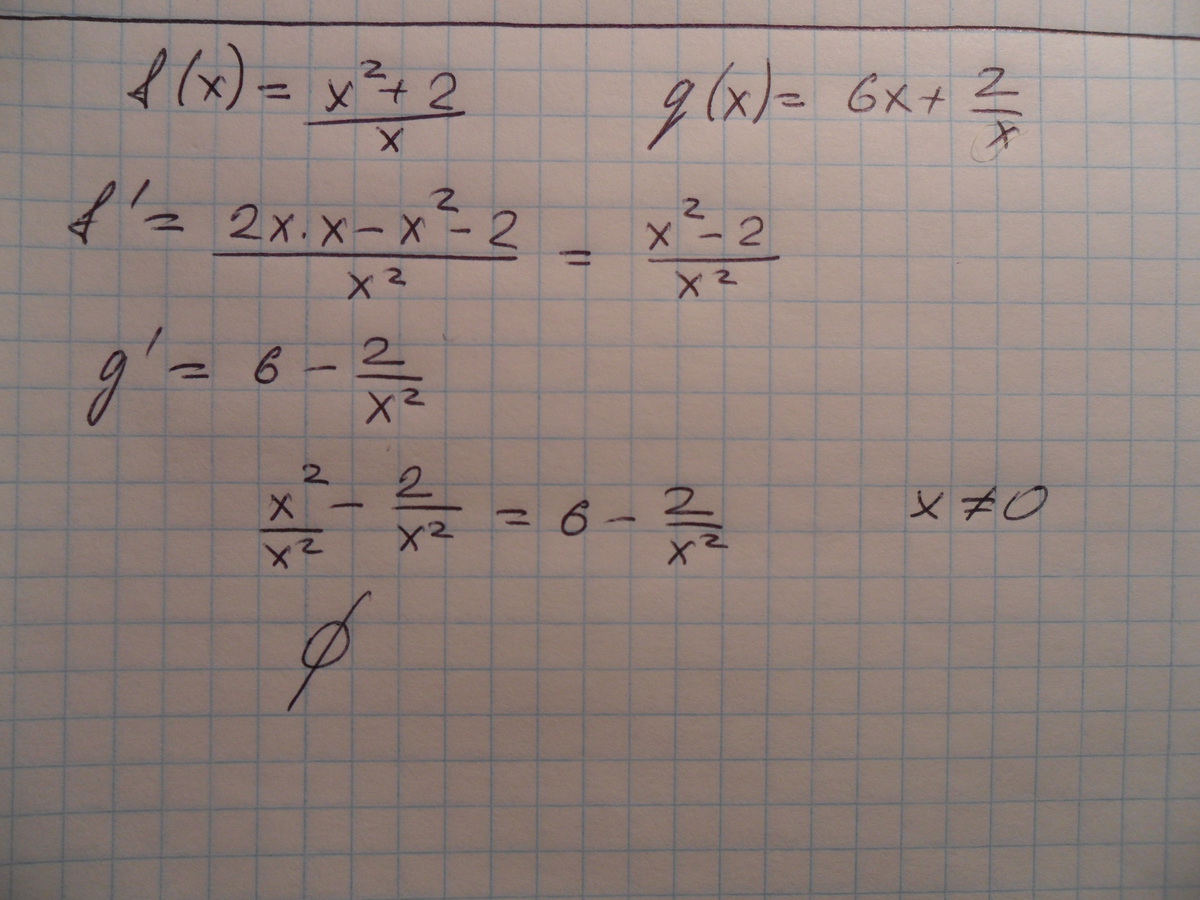 f(x) = (x² + 2)/x    g(x) = 6x + 2/x
f' = (2x·x − x² − 2)/x² = (x² − 2)/x²
g' = 6 − 2/x²
x²/x² − 2/x² = 6 − 2/x²    x ≠ 0
∅